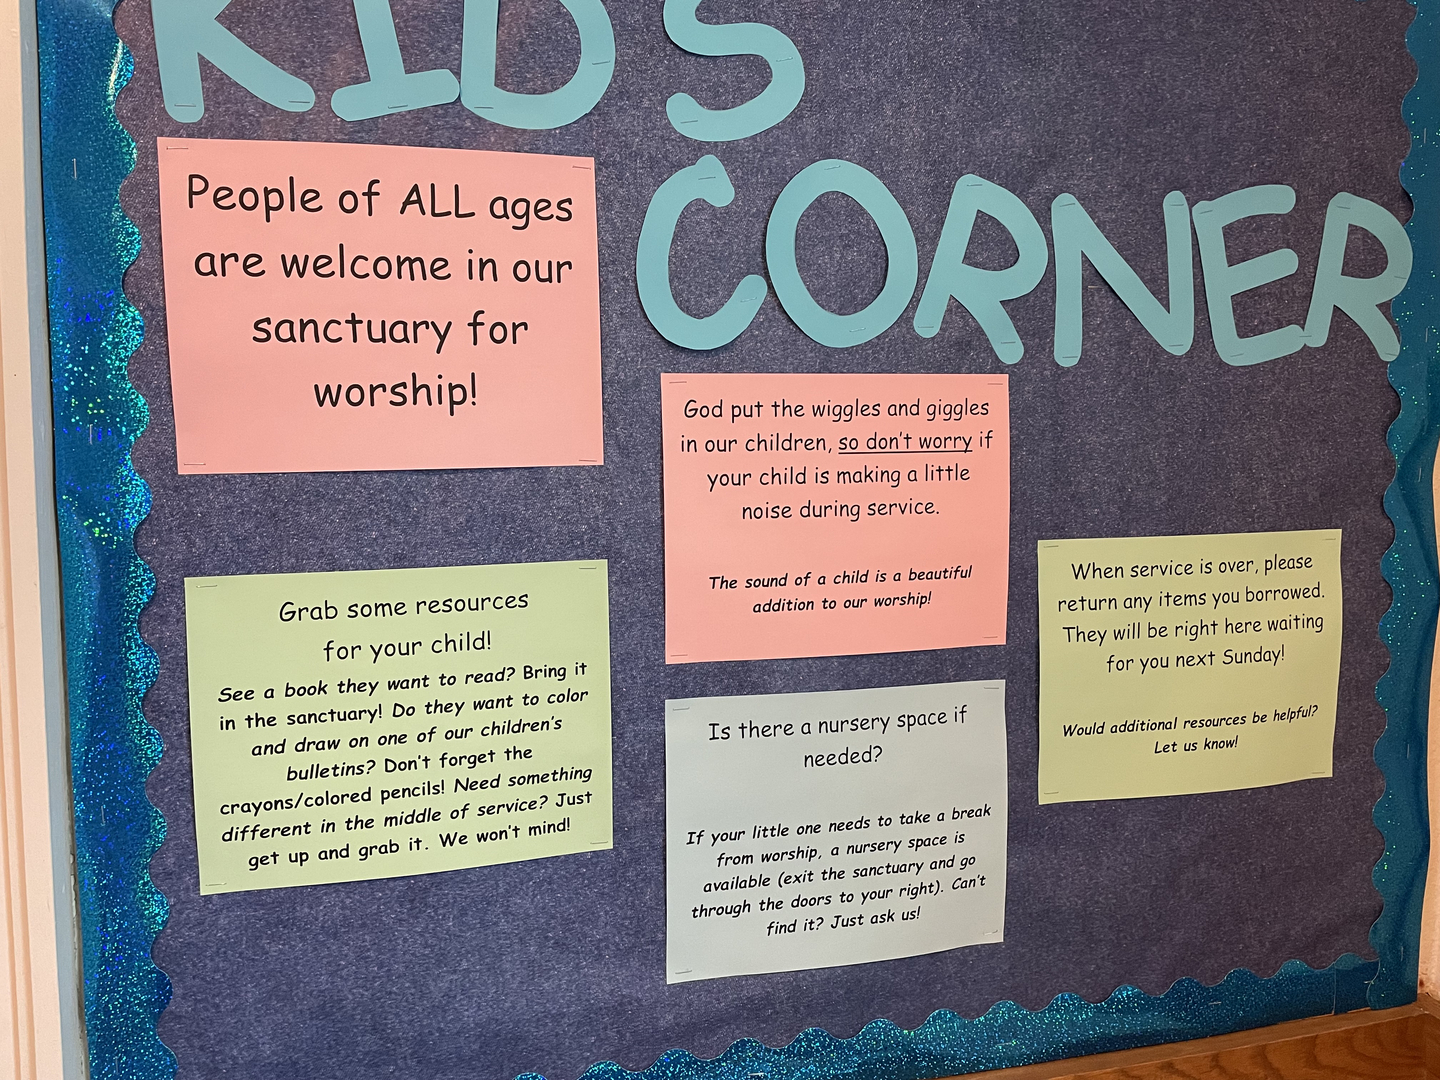 KIDS
CORNER
People of ALL ages
are welcome in our
sanctuary for
worship!
God put the wiggles and giggles
in our children, so don't worry if
your child is making a little
noise during service.
The sound of a child is a beautiful
addition to our worship!
Grab some resources
for your child!
See a book they want to read? Bring it
in the sanctuary! Do they want to color
and draw on one of our children's
bulletins? Don't forget the
crayons/colored pencils! Need something
different in the middle of service? Just
get up and grab it. We won't mind!
Is there a nursery space if
needed?
If your little one needs to take a break
from worship, a nursery space is
available (exit the sanctuary and go
through the doors to your right). Can't
find it? Just ask us!
When service is over, please
return any items you borrowed.
They will be right here waiting
for you next Sunday!
Would additional resources be helpful?
Let us know!